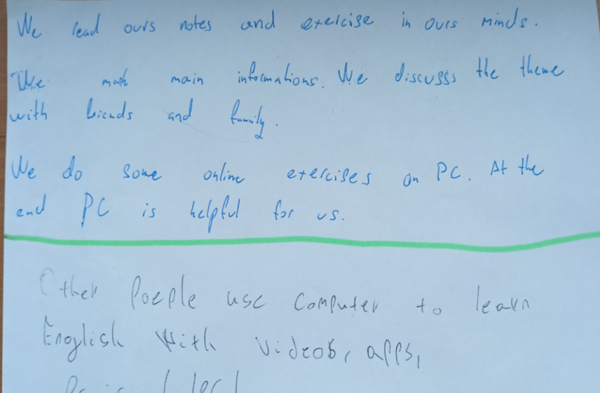 We read ours notes and exercise in ours minds.
We main informations. We discuss the theme
with friends and family.
We do some online exercises on PC. At the
end PC is helpful for us.
Other people use computer to learn
English with videos, apps,